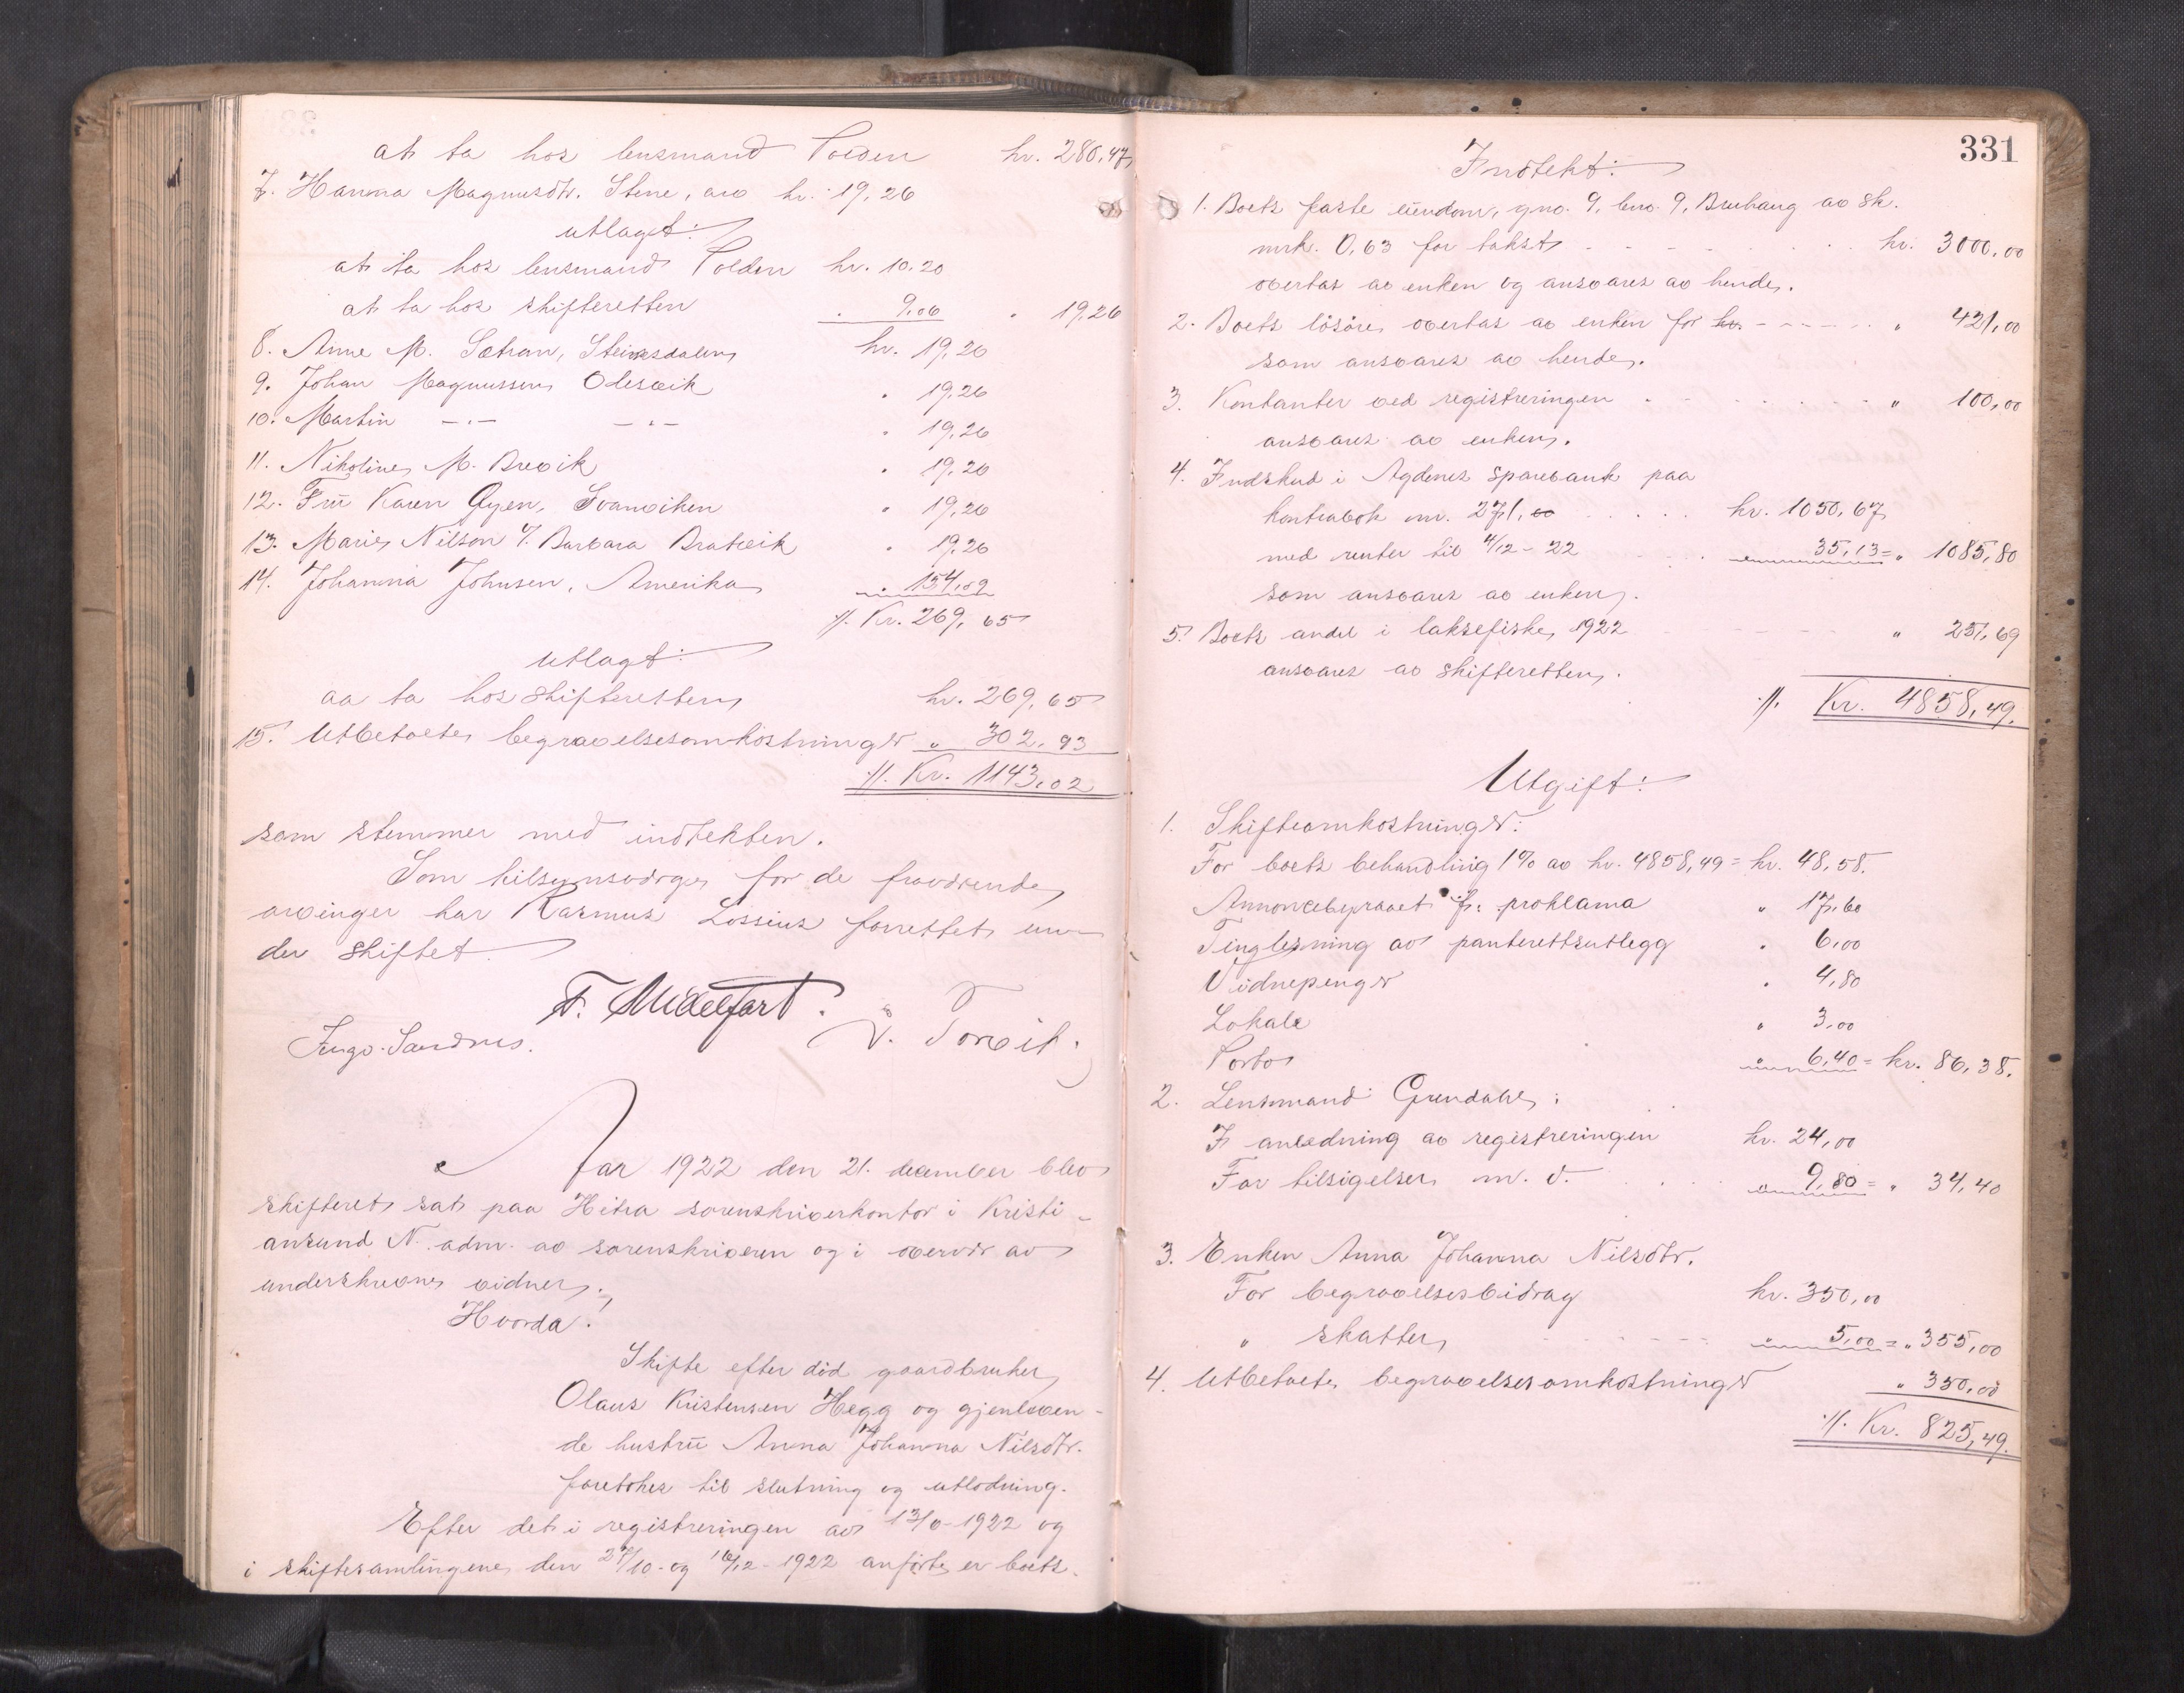 at ta hos lensmand Polden kr. 280,47
7. Hanna Magnusdtr. Stene, arv kr. 19,26
utlagt:
at ta hos lensmand Polden kr. 10,20
at ta hos skifteretten " 9,06 " 19,26
8. Anne M. Sætran, Steinsdalen kr. 19,26
9. Johan Magnussen Olesvik " 19,26
10. Martin -"- -"- " 19,26
11. Nikoline M. Brevik " 19,26
12. Fru Karen Øyen, Svanviken " 19,26
13. Marie Nilson v/ Barbara Bratvik " 19,26
14. Johanna Johnsen, Amerika " 154,09
://: Kr. 269,65
Utlagt:
aa ta hos skifteretten kr. 269,65
15. Utbetalte begravelsesomkostninger " 302,93
://: Kr. 1143,02
som stemmer med indtekten.
Som tilsynsværge for de fraværende
arvinger har Rasmus Lossius forrettet un-
der skiftet.
F. Midelfart.
Inga Sandnes. J. Torvik.
Aar 1922 den 21. december blev
skifteret sat paa Hitra sorenskriverkontor i Kristi-
ansund N. adm. av sorenskriveren og i overvær av
underskrevne vidner.
Hvorda!
Skifte efter død gaardbruker
Olaus Kristensen Hegg og gjenleven-
de hustru Anna Johanna Nilsdtr.
foretokes til slutning og utlodning.
Efter det i registreringen av 13/6-1922 og
i skiftesamlingene den 27/10- og 16/12-1922 anførte er boets
331
Indtekt:
1. Boets faste eiendom, gno. 9, bno. 9, Bruhaug av sk.
mrk. 0,63 for takst kr. 3000,00
overtas av enken og ansvares av hende.
2. Boets løsøre overtas av enken for kr. " 421,00
som ansvares av hende.
3. Kontanter ved registreringen " 100,00
ansvares av enken.
4. Indskud i Agdenes sparebank paa
kontrabok nr. 271, kr. 1050,67
med renter til 4/12-22 " 35,13 = " 1085,80
som ansvares av enken.
5. Boets andel i laksefiske 1922 " 251,69
ansvares av skifteretten.
://: Kr. 4858,49.
Utgift:
1. Skifteomkostninger:
For boets behandling 1% av kr. 4858,49 = kr. 48,58.
Annoncebyraaet f: proklama " 17,60
Tinglesning av panterettsutlegg " 6,00
Vidnepenger " 4,80
Lokale " 3,00
Porto " 6,40 = kr. 86,38.
2. Lensmand Grendahl:
I anledning av registreringen kr. 24,00
For tilsigelser m. v. " 9,80 = " 34,40
3. Enken Anna Johanna Nilsdtr.
For begravelsesbidrag kr. 350,00
" skatter " 5,00 = " 355,00
4. Utbetalte begravelsesomkostninger " 350,00
://: Kr. 825,49.